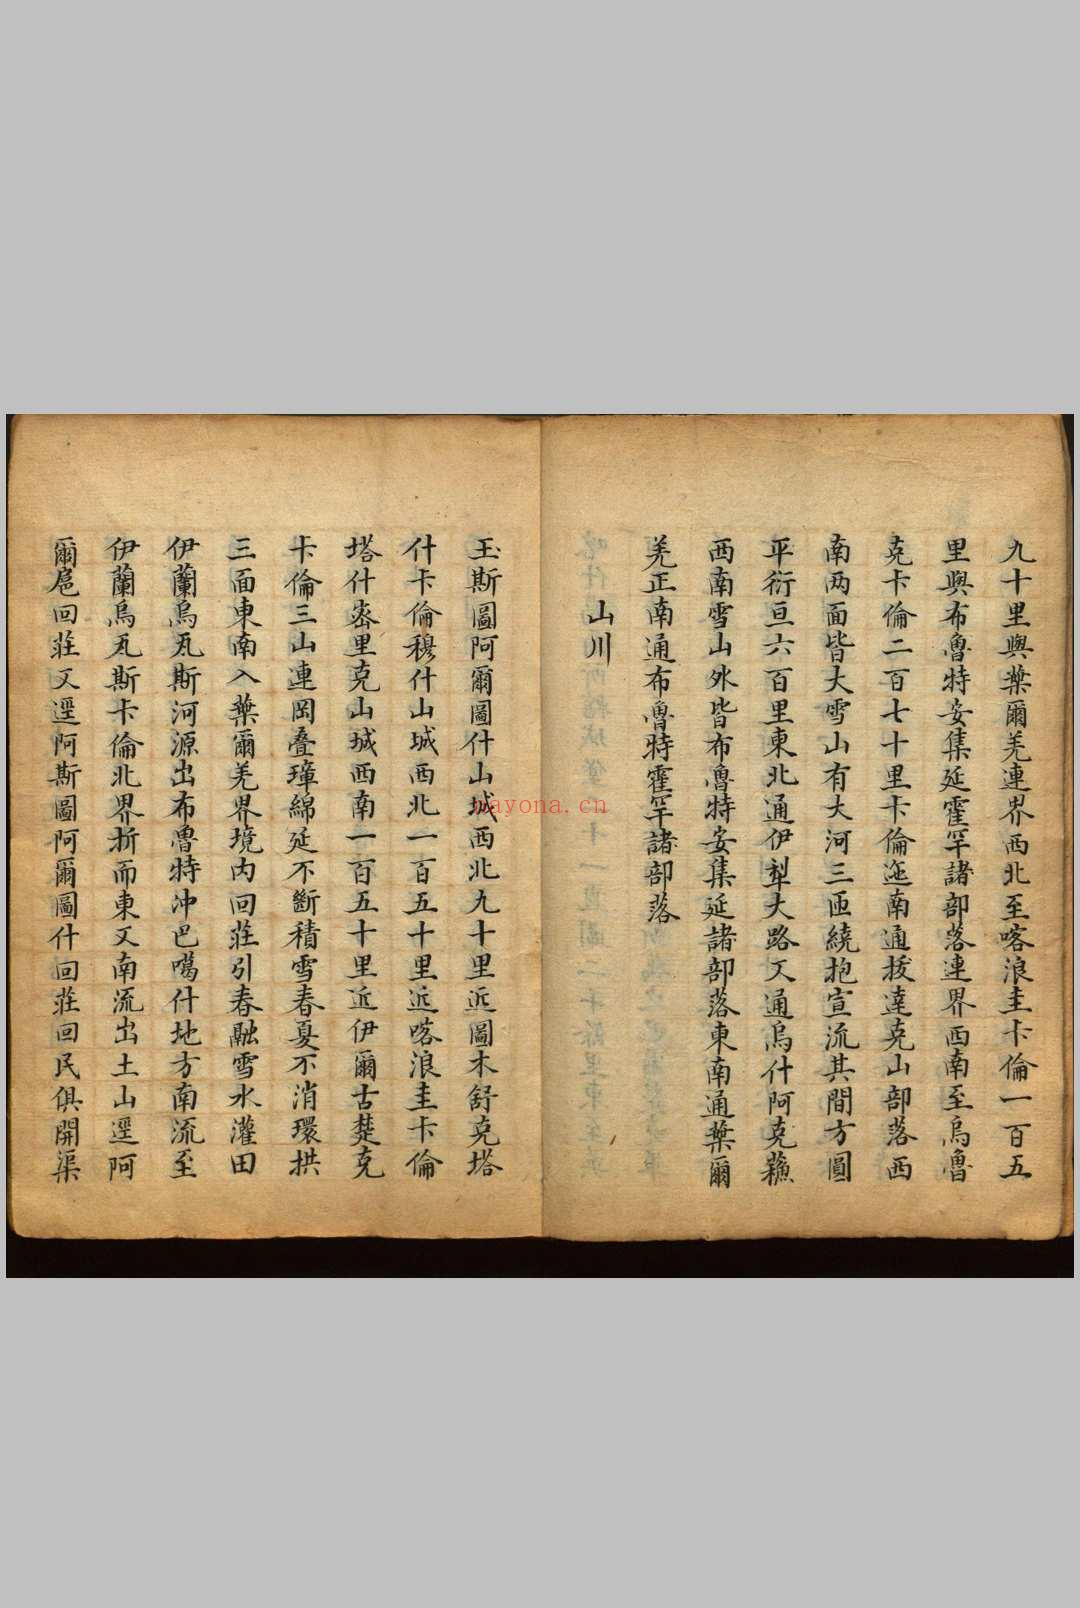 九十里與葉爾羌連界西北至喀浪圭卡倫一百五
里與布魯特安集延霍罕諸部落連界西南至烏魯
克卡倫二百七十里卡倫迤南通拔達克山部落西
南两面皆大雪山有大河三匝繞抱宣流其間方圓
平衍亘六百里東北通伊犁大路又通烏什阿克蘓
西南雪山外皆布魯特安集延諸部落東南通葉爾
羌正南通布魯特霍罕諸部落
山川
玉斯圖阿爾圖什山城西北九十里近圖木舒克塔
什卡倫穆什山城西北一百五十里近喀浪圭卡倫
塔什宻里克山城西南一百五十里近伊爾古楚克
卡倫三山連岡叠璋綿延不斷積雪春夏不消環拱
三面東南入葉爾羌界境内回莊引春融雪水灌田
伊蘭烏瓦斯河源出布魯特冲巴噶什地方南流至
伊蘭烏瓦斯卡倫北界折而東又南流出土山逕阿
爾扈回莊又逕阿斯圖阿爾圖什回莊回民俱開渠
nayona.cn